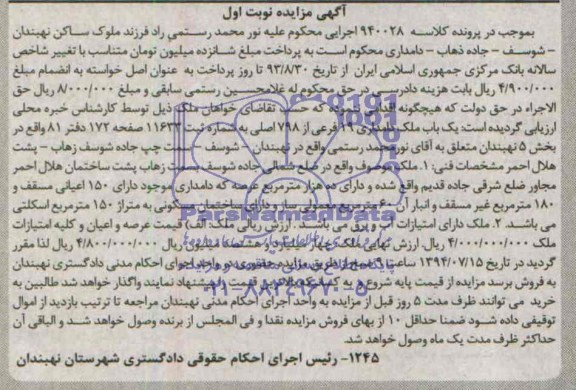 آگهی مزایده نوبت اول
بموجب در پرونده کلاسه ۹۴۰۰۲۸ اجرایی محکوم علیه نور محمد رستمی راد فرزند ملوک ساکن نهبندان
- شوسف - جاده ذهاب - دامداری محکوم است به پرداخت مبلغ شانزده میلیون تومان متناسب با تغییر شاخص
سالانه بانک مرکزی جمهوری اسلامی ایران از تاریخ ۹۳/۸/۳۰ تا روز پرداخت به عنوان اصل خواسته به انضمام مبلغ
۴/۹۰۰/۰۰۰ ریال بابت هزینه دادرسی در حق محکوم له غلامحسین رستمی سابقی و مبلغ ۸/۰۰۰/۰۰۰ ریال حق
الاجراء در حق دولت که هیچگونه اقدامی ننموده که حسب تقاضای خواهان ملک ذیل توسط کارشناس خبره محلی
ارزیابی گردیده است: یک باب ملک دامداری ۱۹ فرعی از ۷۹۸ اصلی به شماره ثبت ۱۱۶۳۳ صفحه ۱۷۲ دفتر ۸۱ واقع در
بخش ۵ نهبندان متعلق به آقای نور محمد رستمی واقع در نهبندان - شوسف - سمت چپ جاده شوسف زهاب - پشت
هلال احمر مشخصات فنی: ۱. ملک موصوف واقع در ضلع شمالی جاده شوسف زهاب پشت ساختمان هلال احمر
مجاور ضلع شرقی جاده قدیم واقع شده و دارای ده هزار مترمربع عرصه که دامداری موجود دارای ۱۵۰ اعیانی مسقف و
۱۸۰ مترمربع غیر مسقف و انبار آن ۶۰ مترمربع معمولی ساز و دارای ساختمان مسکونی به متراژ ۱۵۰ مترمربع اسکلتی
می باشد. ۲. ملک دارای امتیازات آب و برق می باشد. ارزش ریالی ملک: الف) قیمت عرصه و اعیان و کلیه امتیازات
ملک ۴/۰۰۰/۰۰۰/۰۰۰ ریال. ارزش نهایی ملک چهار میلیارد و هشتصد میلیون ریال ۴/۸۰۰/۰۰۰/۰۰۰ ریال لذا مقرر
گردید در تاریخ ۱۳۹۴/۰۷/۱۵ ساعت ۹ صبح از طریق مزایده حضوری در واحد اجرای احکام مدنی دادگستری نهبندان
به فروش برسد مزایده از قیمت پایه شروع و به کسانیکه بالاترین قیمت را پیشنهاد نمایند واگذار خواهد شد طالبین به
خرید می توانند ظرف مدت ۵ روز قبل از مزایده به واحد اجرای احکام مدنی نهبندان مراجعه تا ترتیب بازدید از اموال
توقیفی داده شود ضمنا حداقل ۱۰ از بهای فروش مزایده نقدا و فی المجلس از برنده وصول خواهد شد و الباقی آن
حداکثر ظرف مدت یک ماه وصول خواهد شد.
۱۲۴۵- رئیس اجرای احکام حقوقی دادگستری شهرستان نهبندان
ParsNamadData
۰۲۱-۸۸۳۴۹۶۷۰-۵